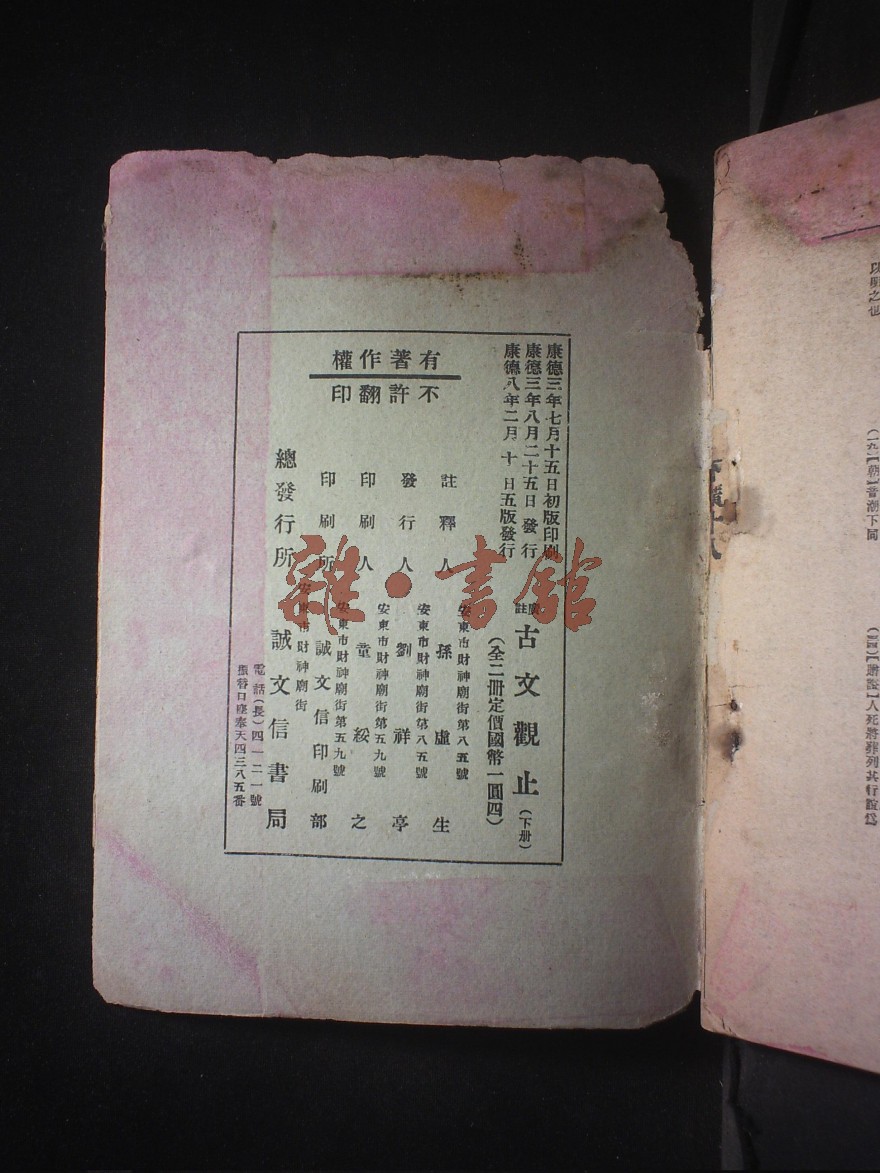 康德三年七月十五日初版印刷
康德三年八月二十五日發行
康德八年二月十日五版發行
廣註
古文觀止（下册）
（全二冊定價國幣一圓四）
有著作權
不許翻印
安東市財神廟街第八五號
註釋人 孫虛生
安東市財神廟街第八五號
發行人 劉祥亭
安東市財神廟街第五九號
印刷人 童綏之
安東市財神廟街第五九號
印刷所 誠文信印刷部
安東市財神廟街
總發行所 誠文信書局
電話（長）四一二一號
振替口座奉天四三八五番
雜·書館
（一九）【朝】音潮下同
人死將葬列其行說爲